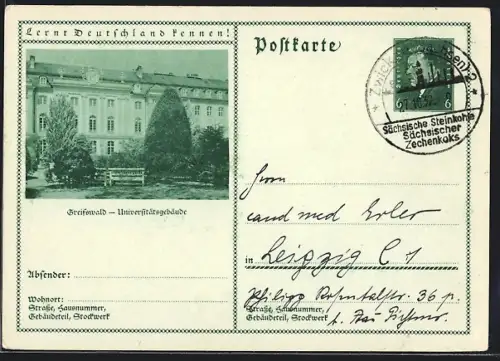 Lernt Deutschland kennen!
Postkarte
6 6
Sächsische Steinkohle
Sächsischer
Zechenkoks
Greifswald — Universitätsgebäude
Herrn
cand med Erler
in Leipzig C 1
Absender:
Philipp Rosentalstr. 36 p.
Wohnort:
Straße, Hausnummer,
Gebäudeteil, Stockwerk
Straße, Hausnummer,
Gebäudeteil, Stockwerk b. Frau